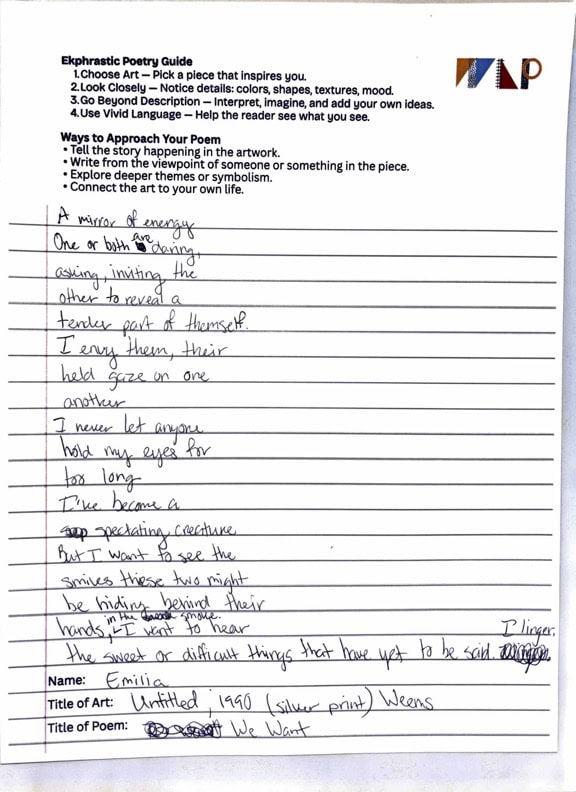 Ekphrastic Poetry Guide
1. Choose Art — Pick a piece that inspires you.
2. Look Closely — Notice details: colors, shapes, textures, mood.
3. Go Beyond Description — Interpret, imagine, and add your own ideas.
4. Use Vivid Language — Help the reader see what you see.
WAP
Ways to Approach Your Poem
• Tell the story happening in the artwork.
• Write from the viewpoint of someone or something in the piece.
• Explore deeper themes or symbolism.
• Connect the art to your own life.
A mirror of energy
One or both are daring,
asking, inviting the
other to reveal a
tender part of themself.
I envy them, their
held gaze on one
another
I never let anyone
hold my eyes for
too long
I've become a
spectating creature
But I want to see the
smiles these two might
be hiding behind their
hands, in the smoke. I want to hear
the sweet or difficult things that have yet to be said. I linger.
Name: Emilia
Title of Art: Untitled, 1990 (silver print) Weems
Title of Poem: We Want